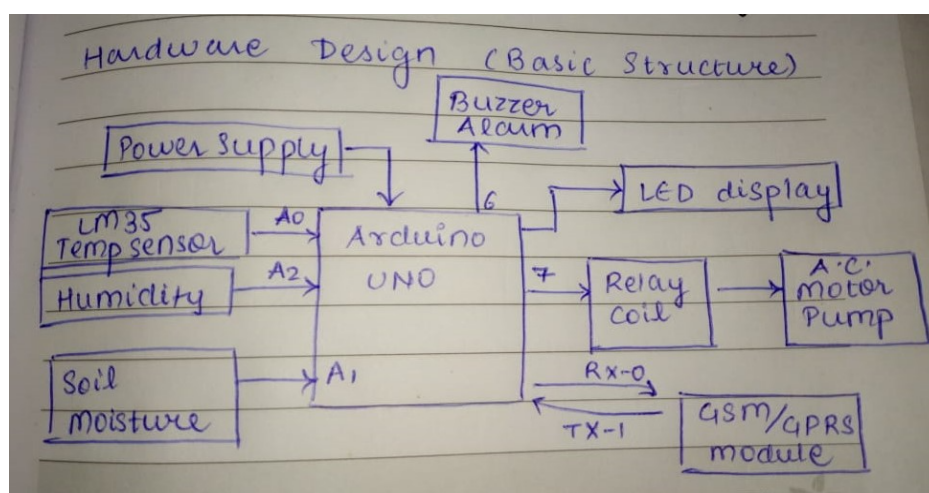 Hardware Design (Basic Structure)
Buzzer
Alarm
Power Supply
6
LED display
LM35
Temp sensor
A0
Arduino
UNO
Humidity
A2
7
Relay
Coil
A.C.
Motor
Pump
Soil
Moisture
A1
RX-0
TX-1
GSM/GPRS
module